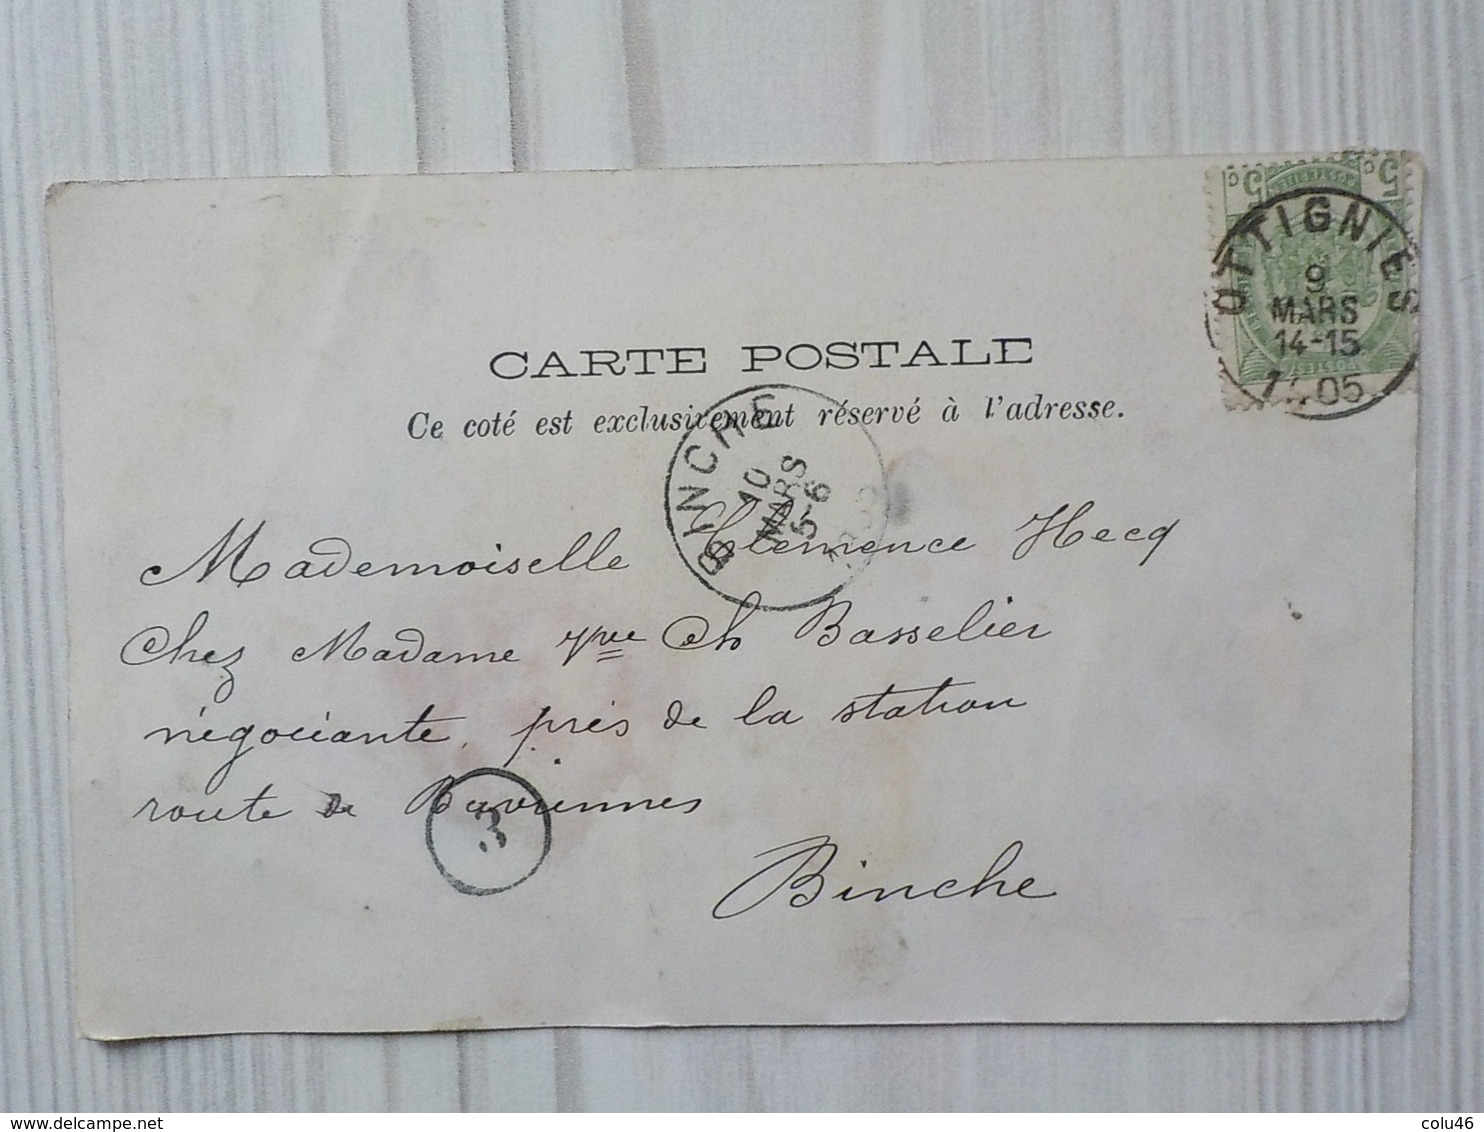 5 c 5 c
OTTIGNIES
9
MARS
14-15
05
CARTE POSTALE
Ce coté est exclusivement réservé à l'adresse.
BINCHE
10
MARS
5-6
Mademoiselle Clemence Hecq
Chez Madame Vve Ch Basselier
négociante, près de la station
route de
3
Binche
delcampe.net
colu46